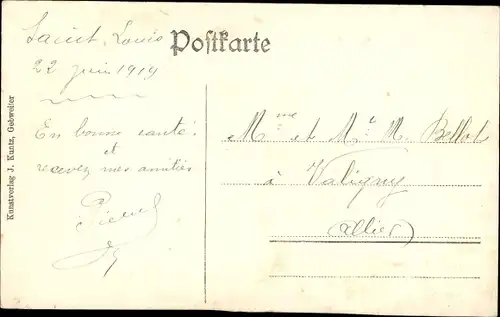 Saint Louis
Postkarte
22 juin 1919
En bonne santé
et
recevez mes amitiés
Mme et Mr M. Bellot
à Valigny
(Allier)
Kunstverlag J. Kuntz, Gebweiler